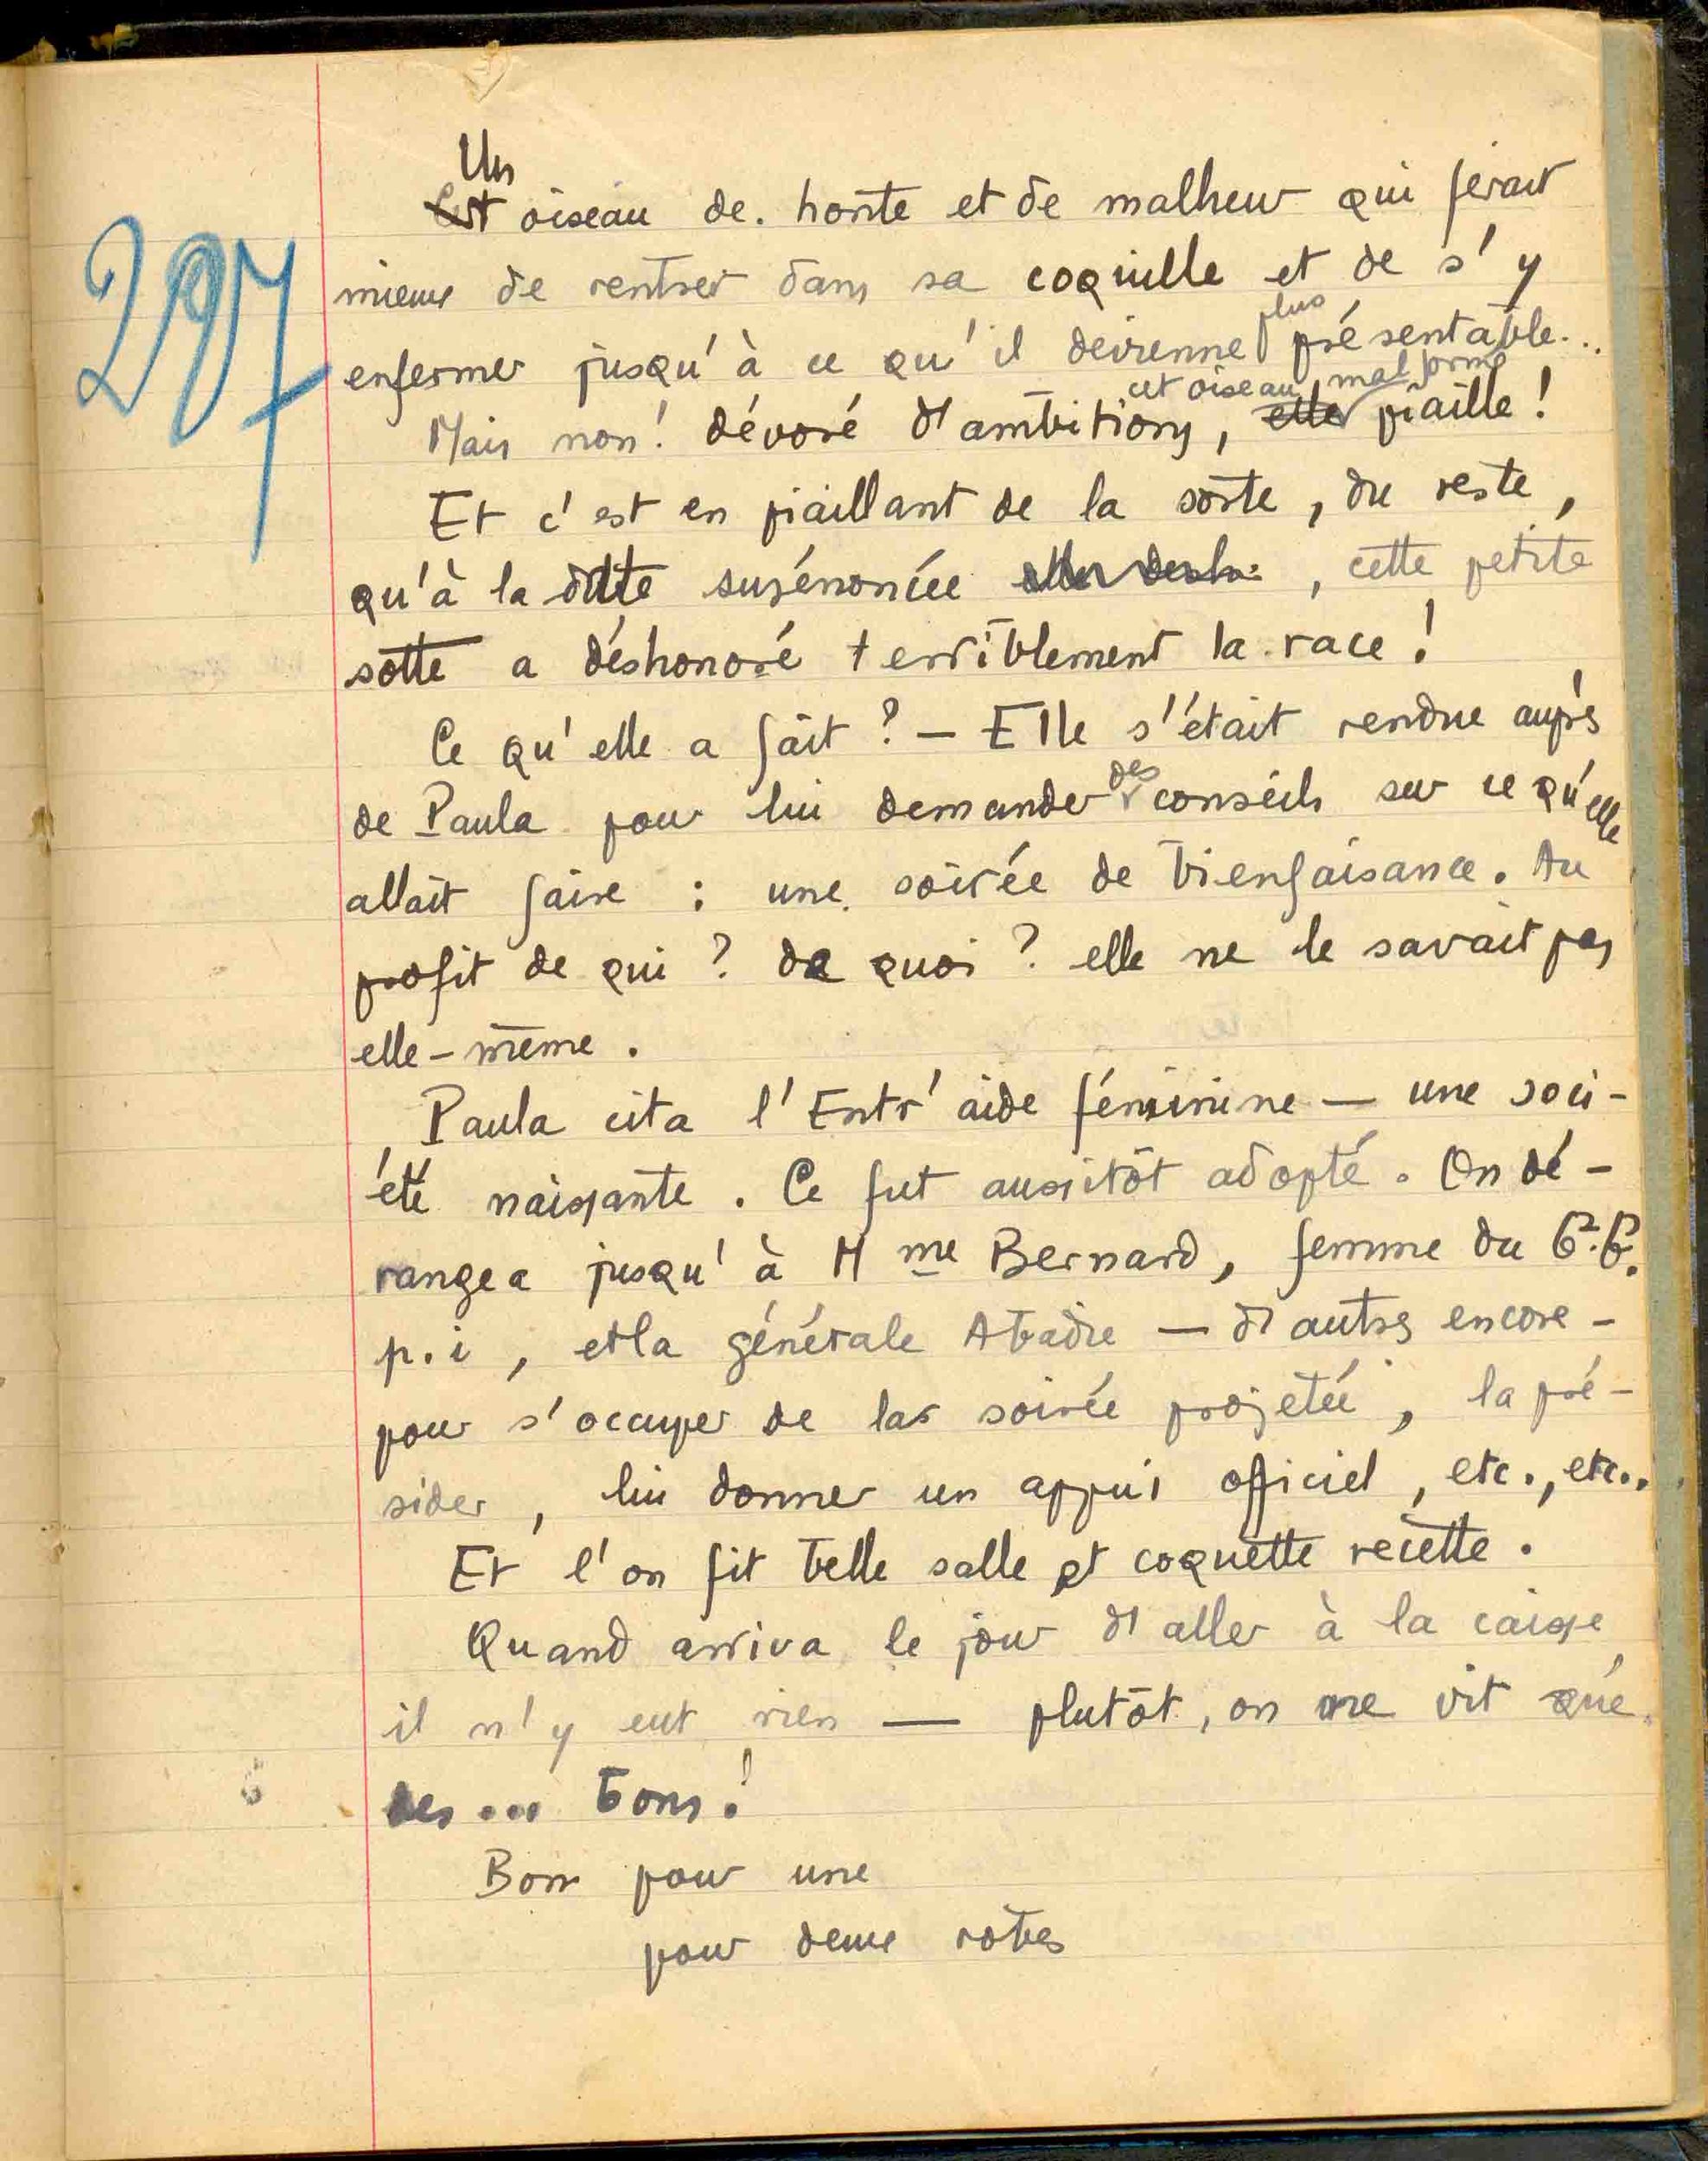 297
Un
oiseau de. honte et de malheur qui ferait
mieux de rentrer dans sa coquille et de s'y
enfermer jusqu'à ce qu'il devienne plus présentable...
Mais non! dévoré d'ambitions, cet oiseau mal formé elle piaille!
Et c'est en piaillant de la sorte, du reste,
qu'à la date susénoncée, cette petite
sotte a déshonoré terriblement la race!
Ce qu'elle a fait? — Elle s'était rendue auprès
de Paula pour lui demander des conseils sur ce qu'elle
allait faire : une soirée de bienfaisance. Au
profit de qui? de quoi? elle ne le savait pas
elle-même.
Paula cita l'Entr'aide féminine — une soci-
été naissante. Ce fut aussitôt adopté. On dé-
rangea jusqu'à Mme Bernard, femme du G.G.
p.i, et la générale Abadie — d'autres encore —
pour s'occuper de la soirée projetée, la pré-
sider, lui donner un appui officiel, etc., etc..
Et l'on fit belle salle et coquette recette.
Quand arriva le jour d'aller à la caisse
il n'y eut rien — plutôt, on ne vit que
des... bons!
Bon pour une
pour deux robes